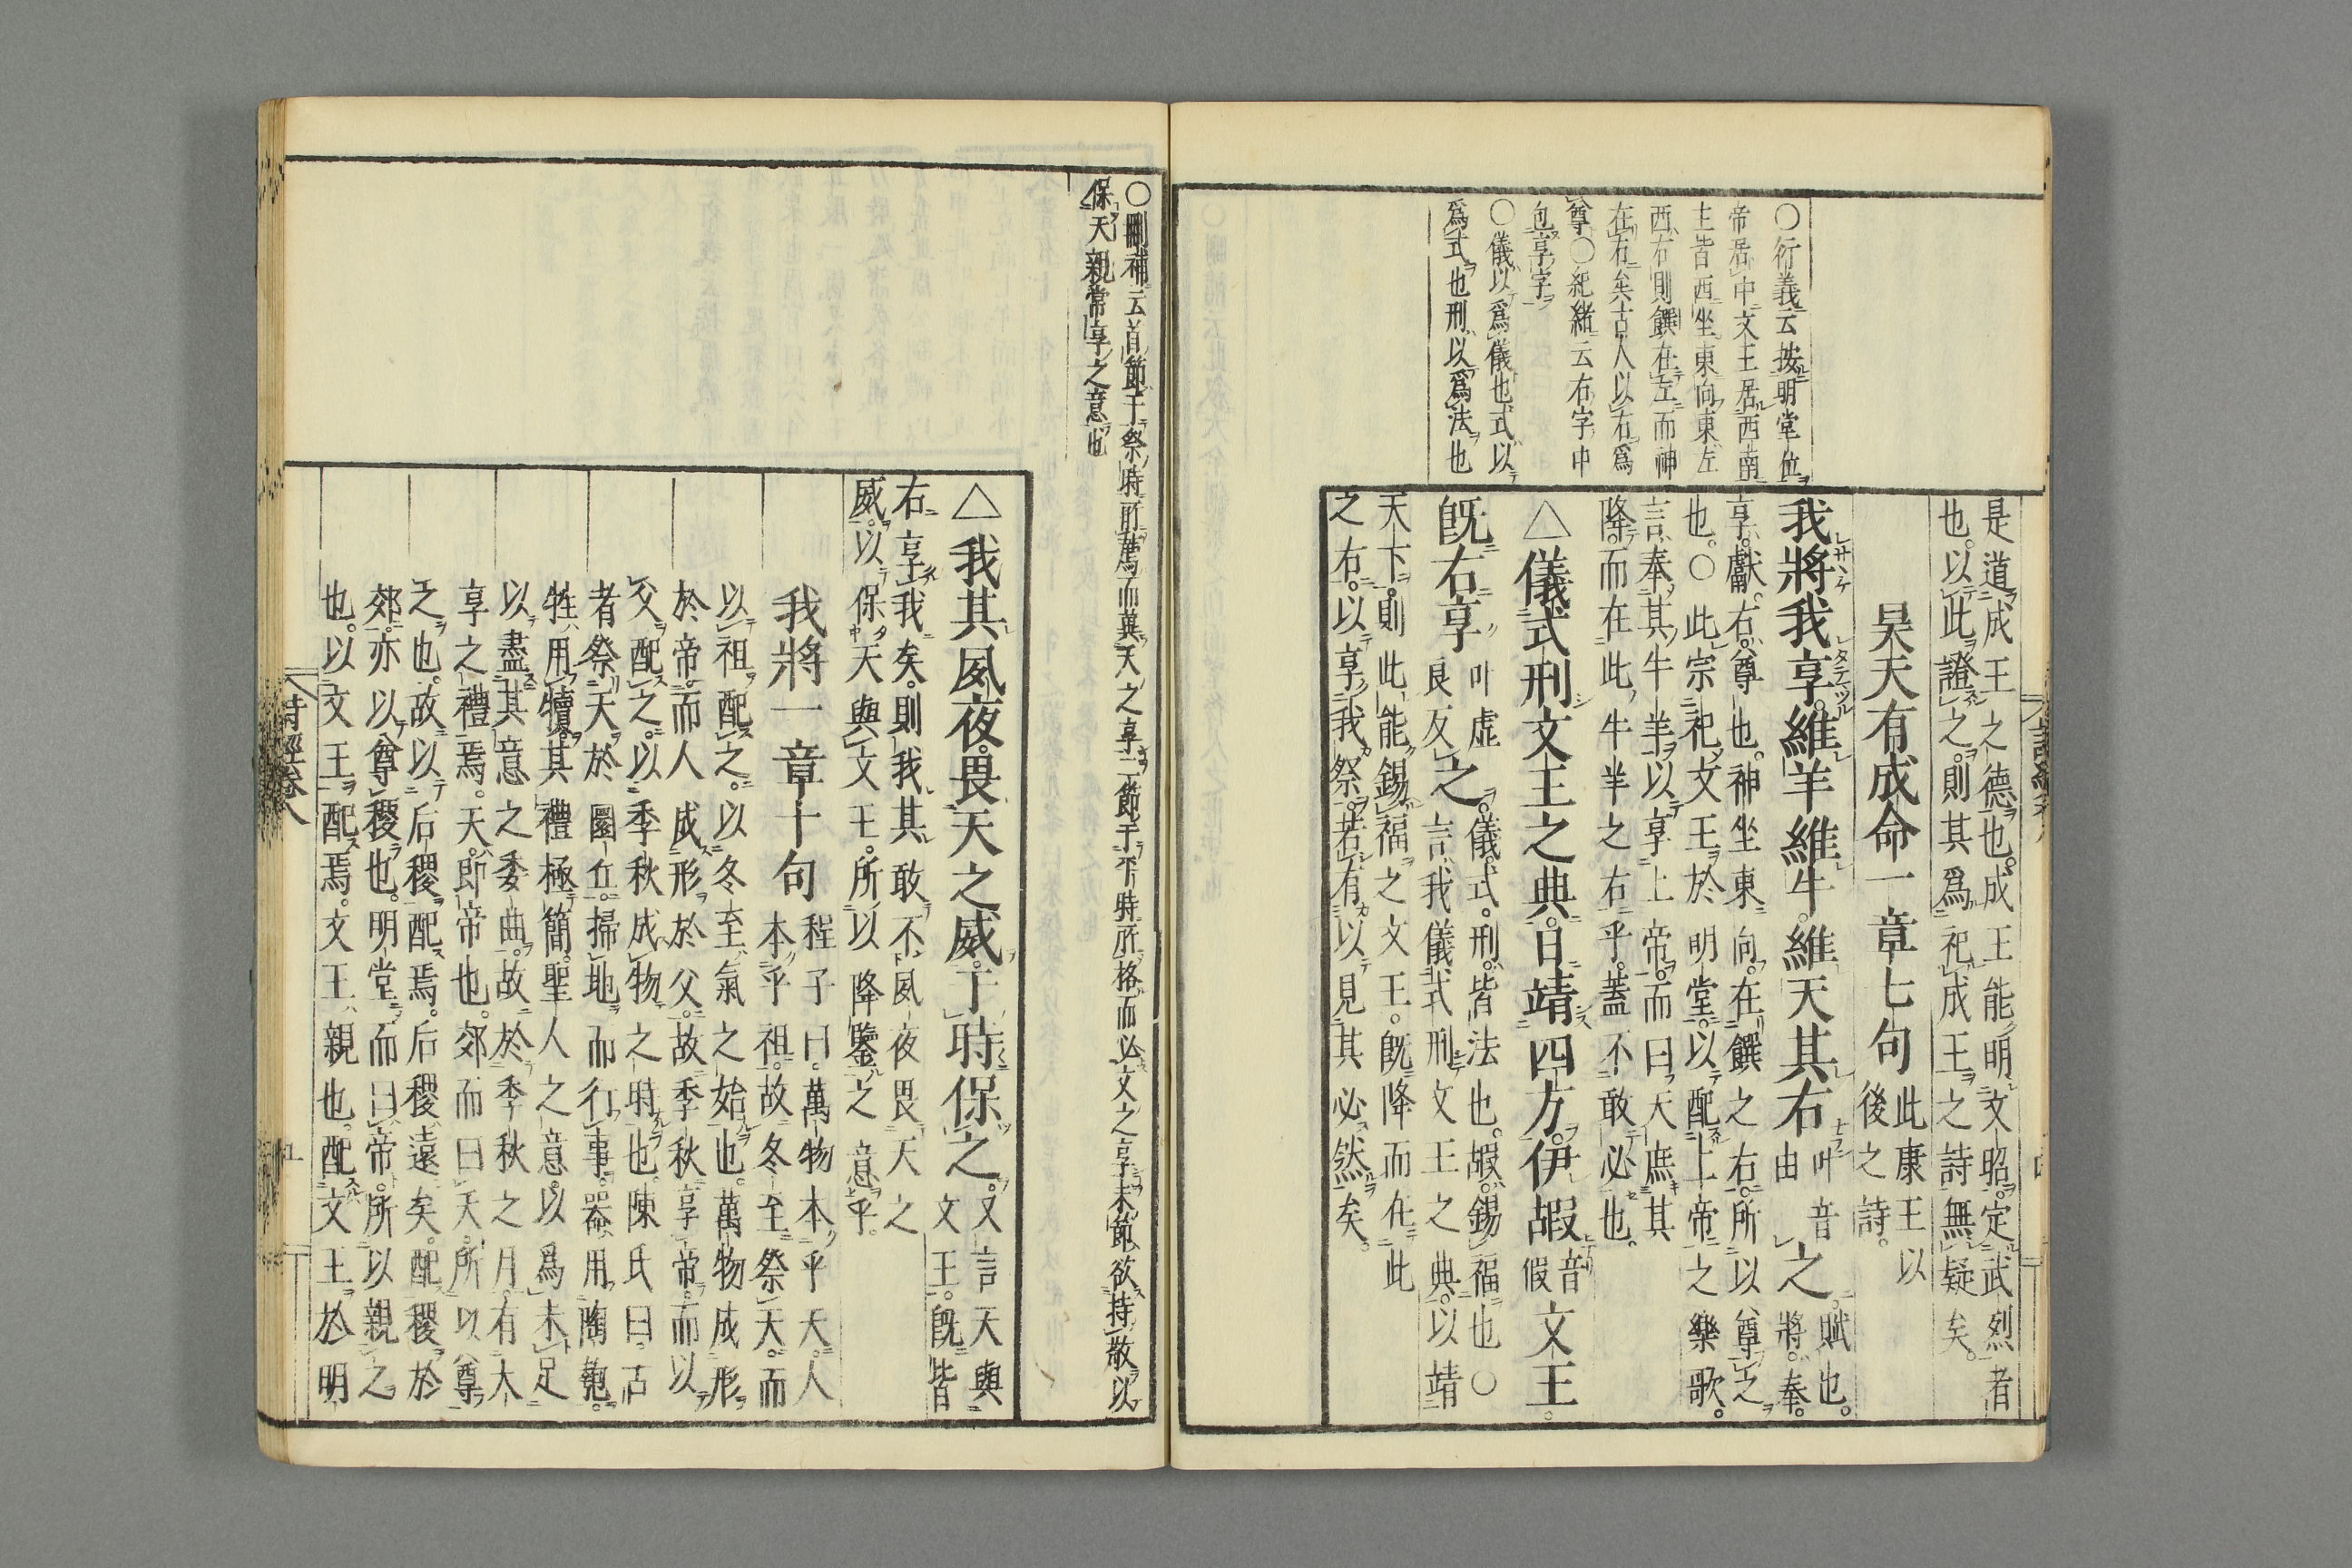 是道成王之德也。成王能明文昭。定武烈者
也。以此證之。則其爲祀成王之詩無疑矣。
昊天有成命一章七句
此康王以
後之詩。
我將我享。維羊維牛。維天其右
叶音
由
之。
賦也。
將。奉。
享。獻。右。尊也。神坐東向。在饌之右。所以尊之
也。○此宗祀文王於明堂。以配上帝之樂歌。
言奉其牛羊以享上帝。而曰天庶其
降。而在此牛羊之右乎。蓋不敢必也。
△儀式刑文王之典。日靖四方。伊嘏
音
假
文王。
旣右享
叶虛
良反
之。
儀。式。刑。皆法也。嘏。錫福也○
言我儀式刑文王之典。以靖
天下。則此能錫福之文王。旣降而在此
之右。以享我祭。若有以見其必然矣。
○衍義云按明堂位
帝居中文王居西南
主皆西坐東向東左
西右則饌在左而神
在右矣古人以右爲
尊○紀緒云右字中
包享字
○儀以爲儀也式以
爲式也刑以爲法也
○刪補云首節于祭時所薦而冀天之享二節于平時所格而必文之享末節欲持敬以
保天親常享之意也
△我其夙夜。畏天之威。于時保之。
又言天與
文王。旣皆
右享我矣。則我其敢不夙夜畏天之
威。以保天與文王。所以降鑒之意乎。
我將一章十句
程子曰。萬物本乎天。人
本乎祖。故冬至祭天。而
以祖配之。以冬至氣之始也。萬物成形
於帝。而人成形於父。故季秋享帝。而以
父配之。以季秋成物之時也。陳氏曰。古
者祭天於圜丘。掃地而行事。器用陶匏。
牲用犢。其禮極簡。聖人之意。以爲未足
以盡其意之委曲。故於季秋之月。有大
享之禮焉。天卽帝也。郊而曰天。所以尊
之也。故以后稷配焉。后稷遠矣。配稷於
郊。亦以尊稷也。明堂。而曰帝。所以親之
也。以文王配焉。文王親也。配文王於明
詩經卷八